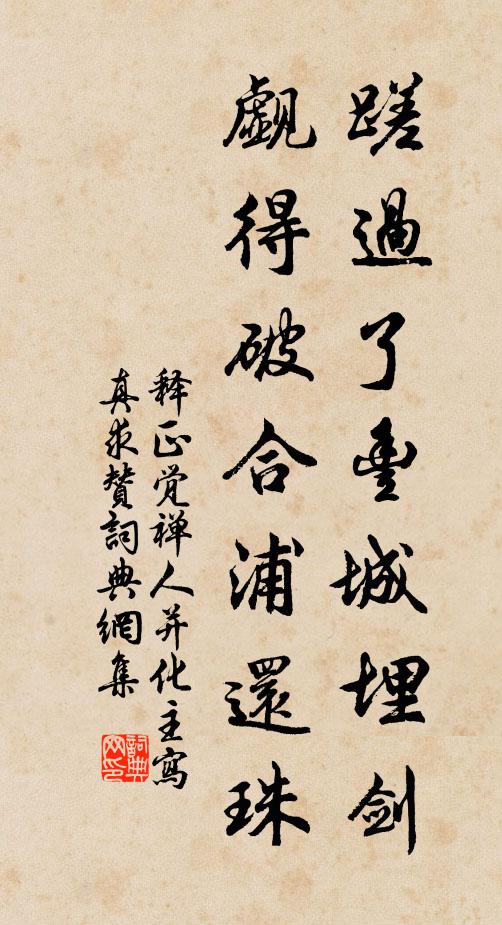 蹉過了豊城埋剑
觑得破合浦還珠
释正觉禅人并化主寫
真求賛詞典網集
詞典
网印